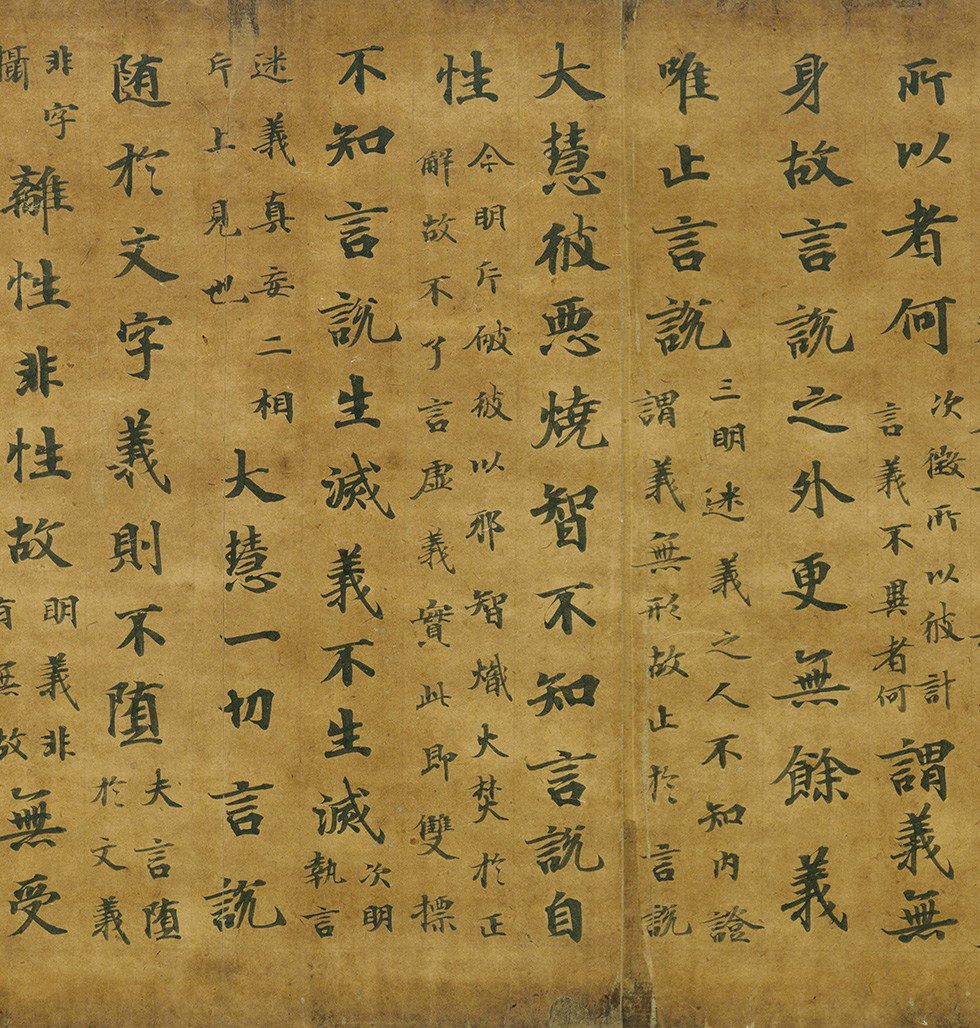 所以者何次徵所以彼計言義不異者何謂義無
身故言説之外更無餘義
唯止言説三明迷義之人不知内證謂義無形故止於言説
大慧彼惡燒智不知言説自
性今明斥破彼以邪智熾火焚於正解故不了言虛義實此即雙標
不知言説生滅義不生滅次明執言
迷義真妄二相斥上見也大慧一切言説
随於文字義則不堕夫言堕於文義
非字攝離性非性故明義非有無故無受